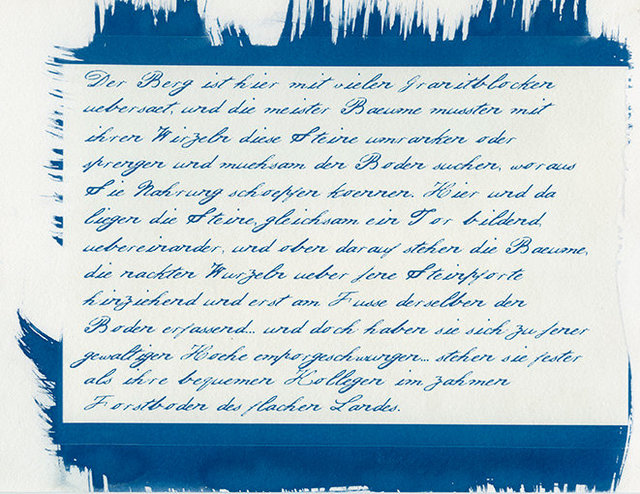 Der Berg ist hier mit vielen Granitblocken
uebersaet, und die meister Baeume mussten mit
ihren Wirzeln diese Steine umranken oder
sprengen und muehsam den Boden suchen, woraus
Sie Nahrung schoepfen koennen. Hier und da
liegen die Steine, gleichsam ein Tor bildend,
uebereinander, und oben darauf stehen die Baeume,
die nackten Wurzeln ueber jene Steinpforte
hinziehend und erst am Fusse derselben den
Boden erfassend... und doch haben sie sich zu jener
gewaltigen Hoehe emporgeschwungen... stehen sie fester
als ihre bequemen Kollegen im zahmen
Forstboden des flachen Landes.